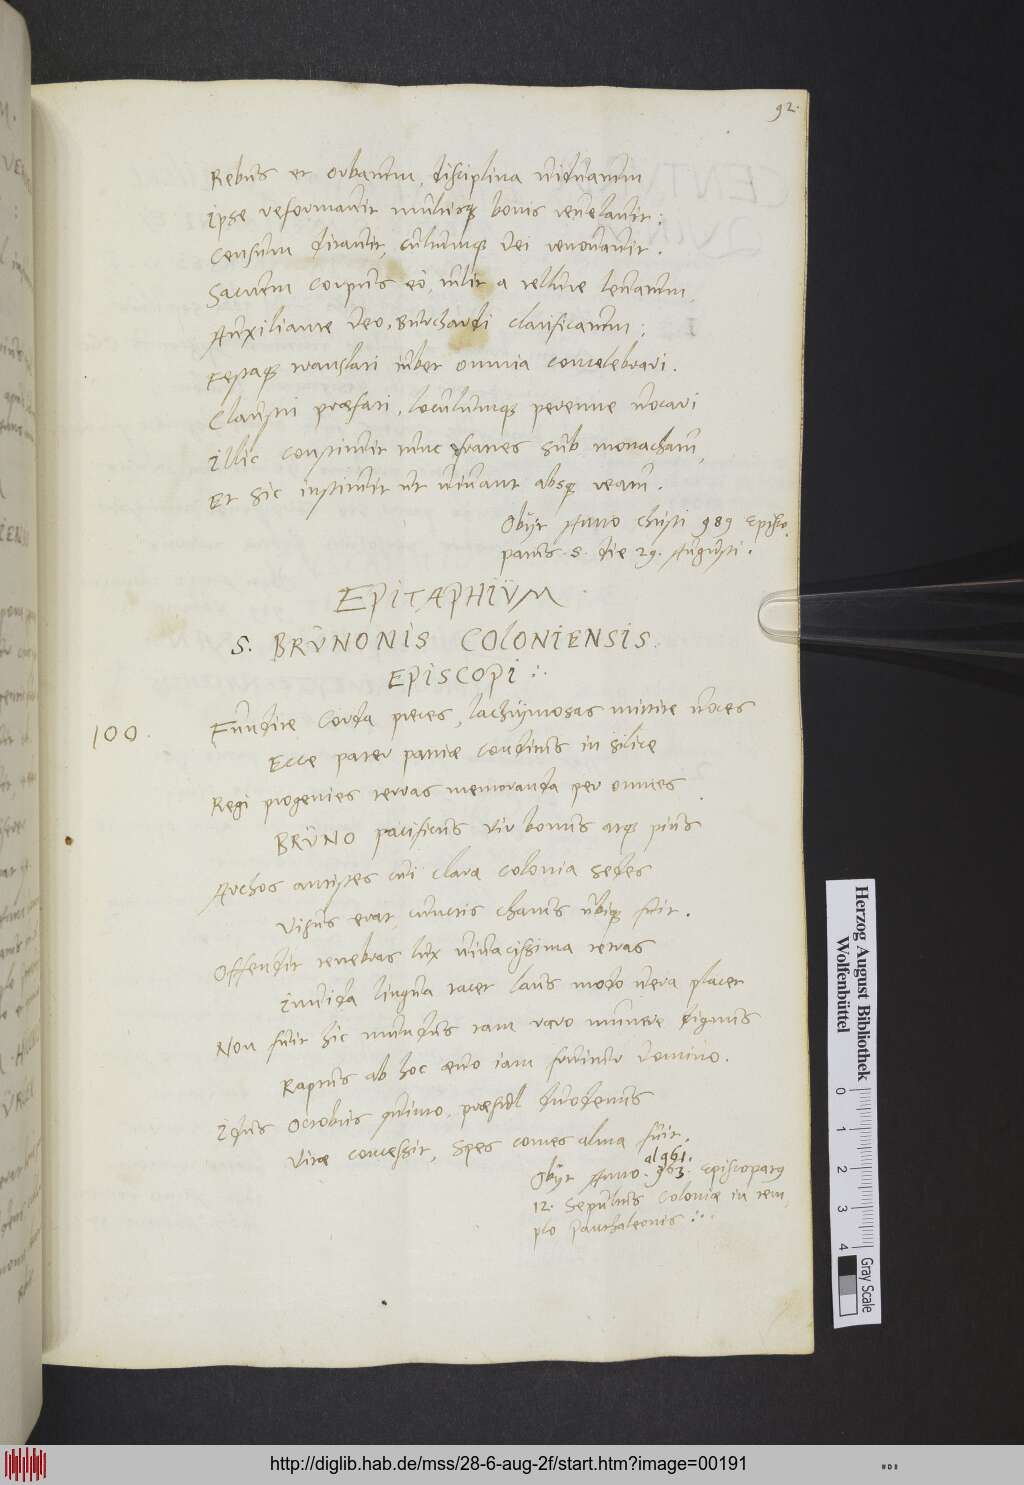 92.
Rebus et orbatum, disciplina uiduatum
Ipse reformauit multisq₃ bonis reuelauit:
Censum ditauit, cultumq₃ Dei renouauit.
Sacrum corpus eo, uult a tellure leuatum,
Auxiliante Deo, Burchardi clarificatum:
Festaq₃ translati iubet omnia concelebrari.
Claustri praefati, loculumq₃ perenne uocari
Illic constituit nunc fratres sub monacham,
Et sic instituit ut uiuant absq₃ reatu.
Obijt Anno Christi 989 Episco,
patus s. die 29. Augusti.
EPITAPHIUM
S. BRUNONIS COLONIENSIS.
EPISCOPI:
100.
Fundite Corda preces, lachrijmosas mittite uoces
Ecce pater patriae conditus in silice
Regi progenies terras memoranda per omnes.
BRUNO pacificus vir bonus atq₃ pius
Archos antistes cui clara colonia sedes
Visus erat, cunctis charus ubiq₃ fuit.
Offendit tenebras lux uiuacissima terras
Inuida lingua tacet laus modo uera placet
Non fuit hic mundus tam uero munere dignus
Raptus ab hoc aeuo iam fruitur domino.
Idus Octobris quimo, praesul duodenus
Vitae concessit, Spes comes alma fuit.
al 961.
Obijt Anno. 963. Episcopatus
12. Sepultus Coloniae in tem,
plo Panthaleonis:
Herzog August Bibliothek
Wolfenbüttel
0 1 2 3 4
Gray Scale
http://diglib.hab.de/mss/28-6-aug-2f/start.htm?image=00191